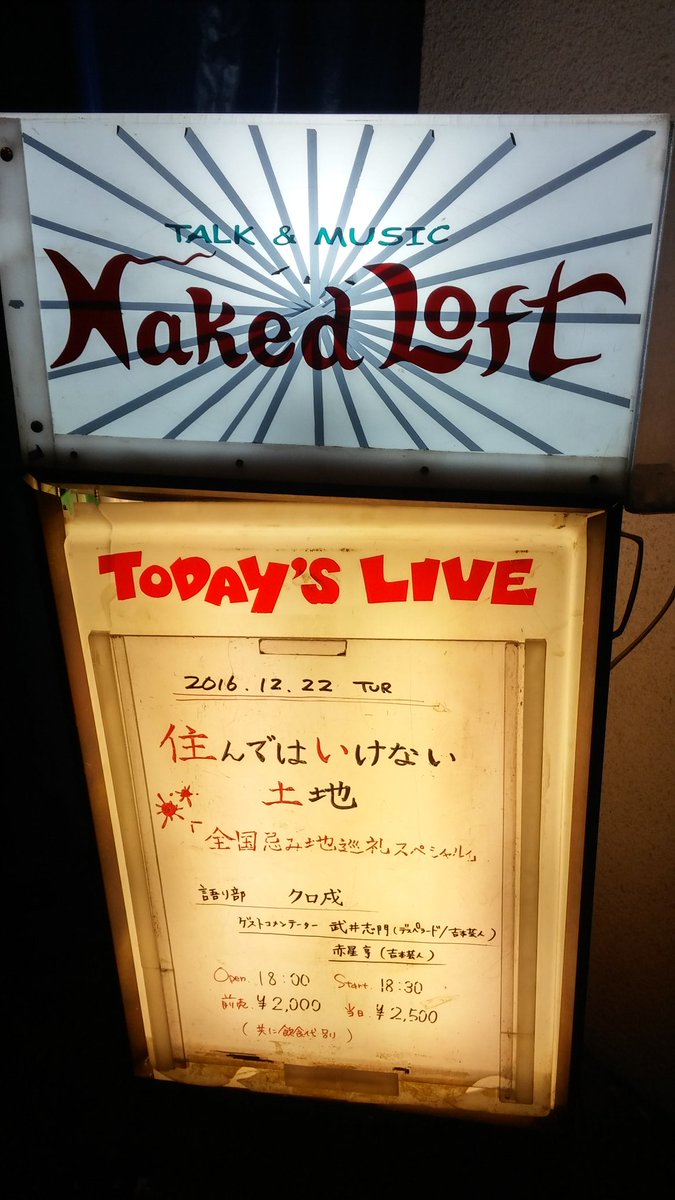 TALK & MUSIC
Naked Loft
TODAY'S LIVE
2016.12.22 TUR
住んではいけない
土地
「全国忌み地巡礼スペシャル」
語り部 クロ戌
ゲストコメンテーター 武井志門(デスペラード/吉本芸人)
赤星亨(吉本芸人)
Open. 18:00 Start. 18:30
前売. ¥2,000 当日. ¥2,500
(共に飲食代別)